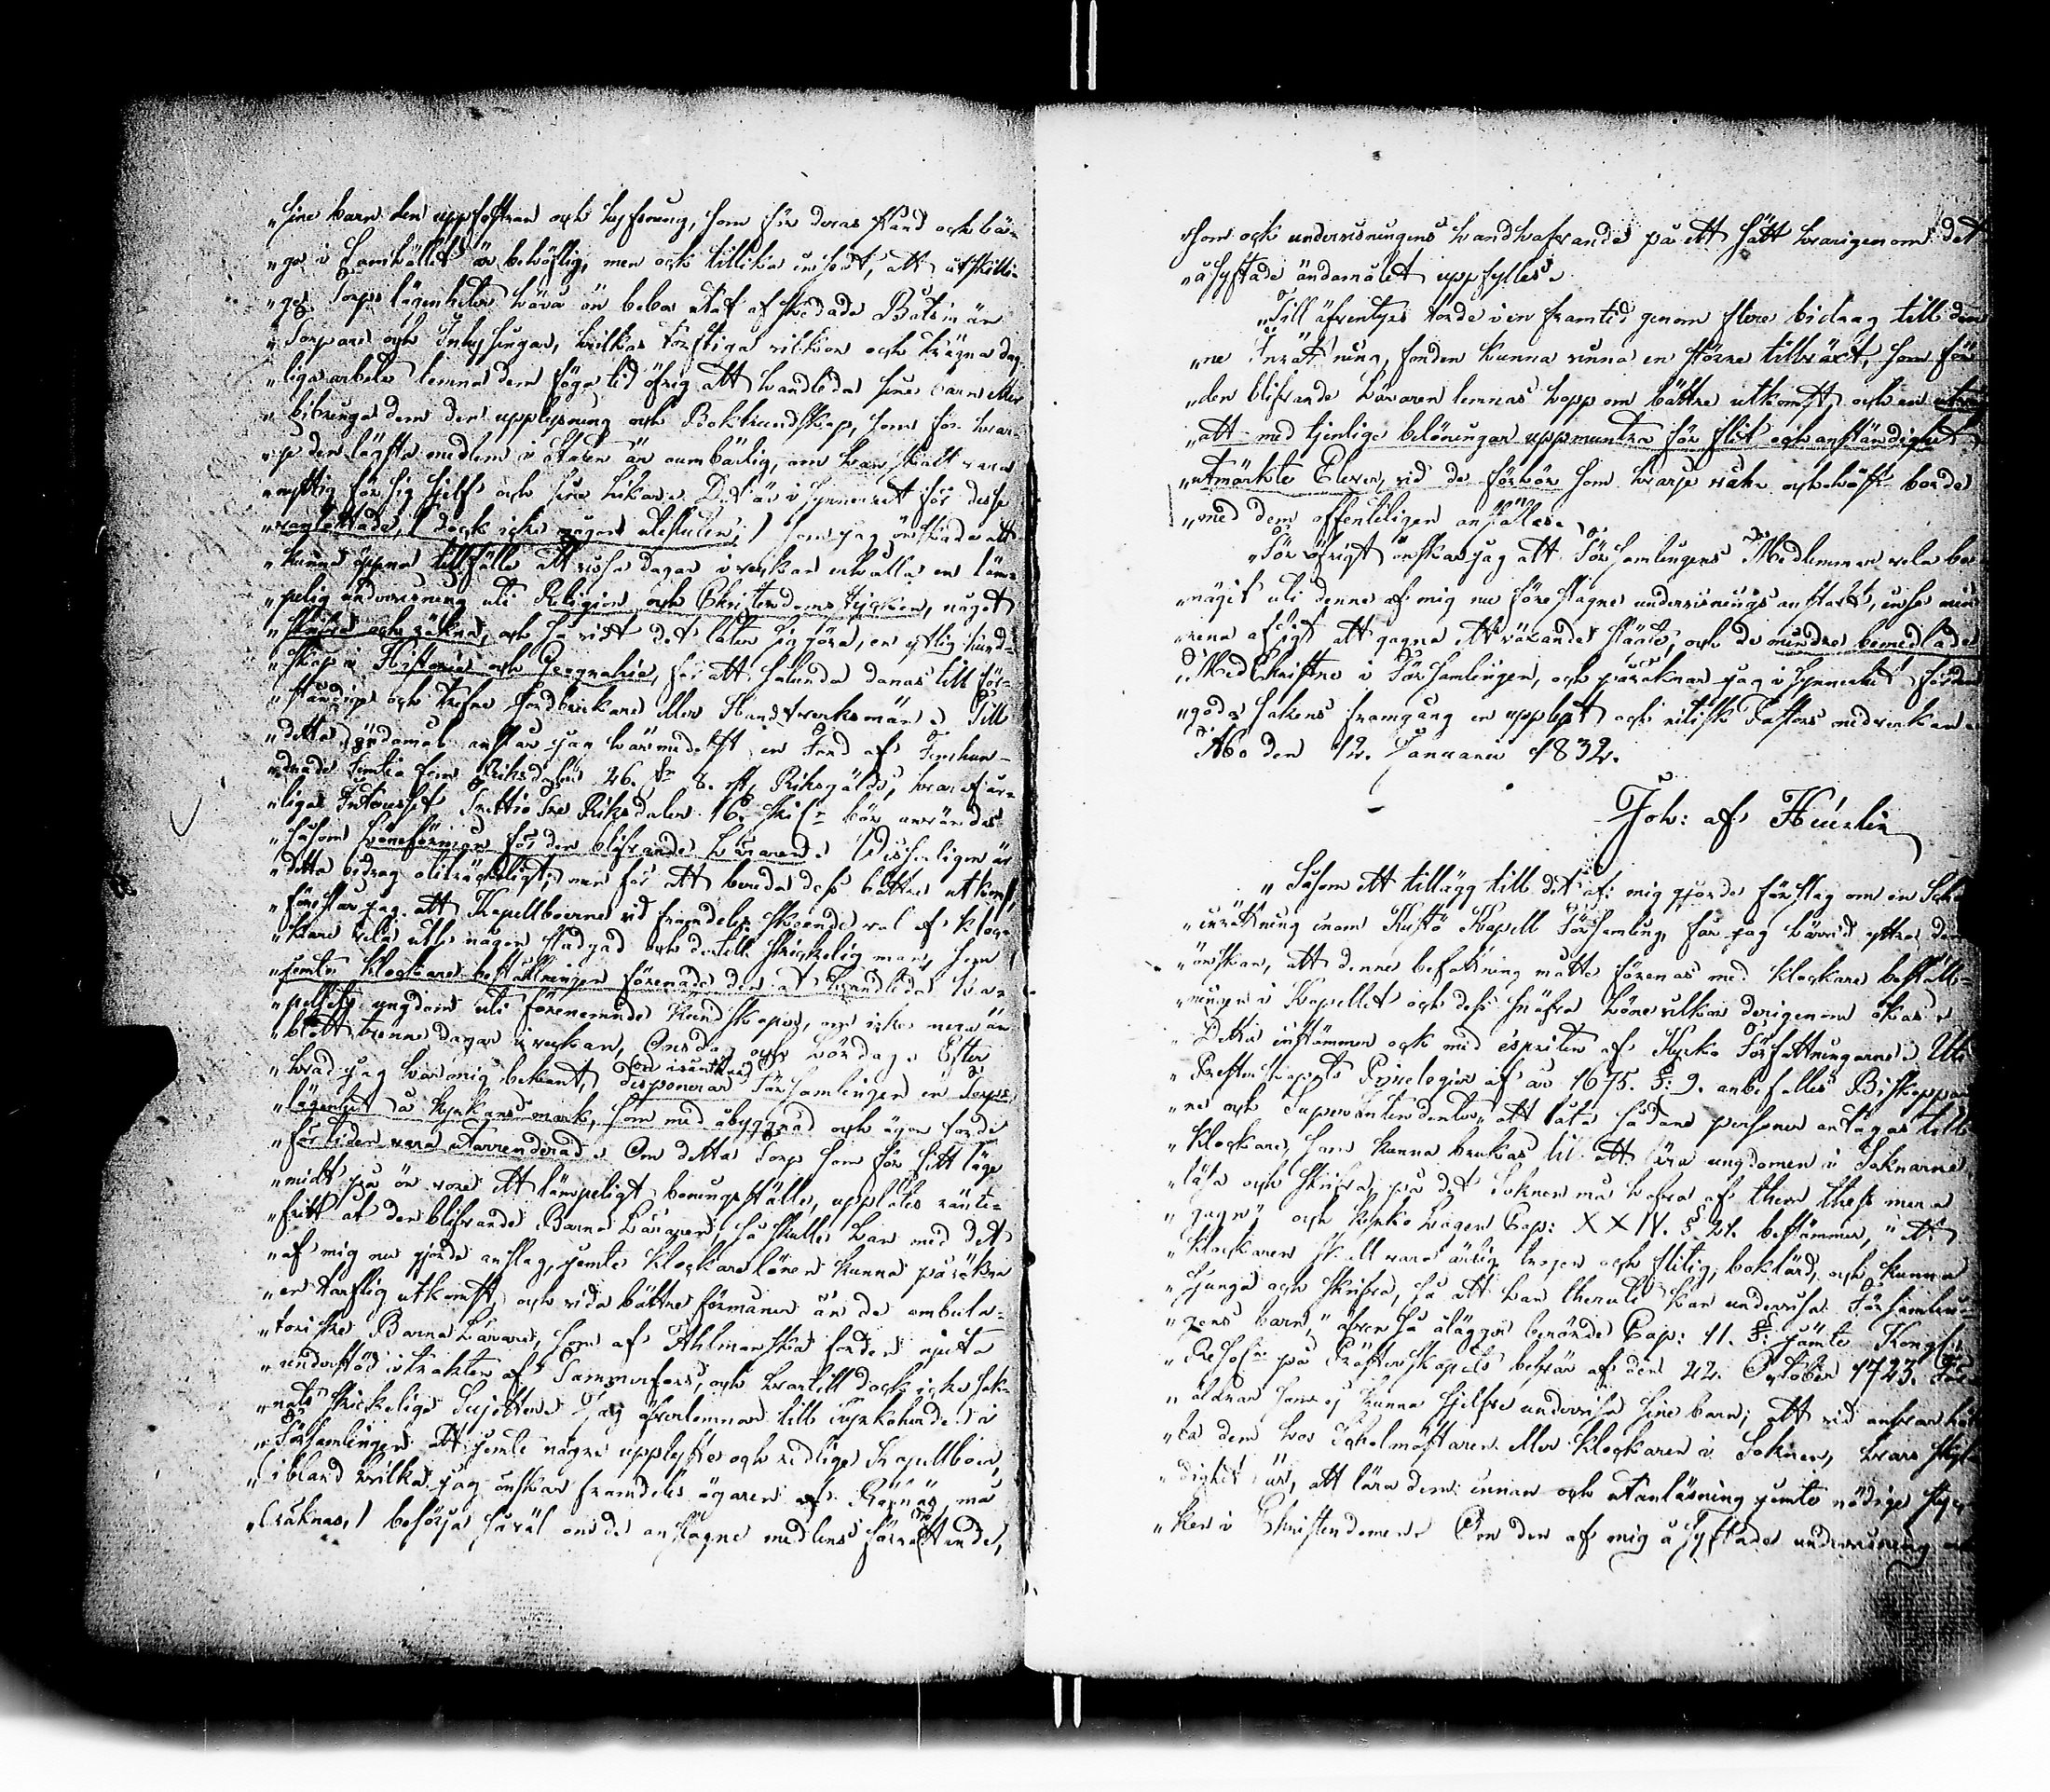 „sine barn den uppfostran och hyfsning, som för deras stånd och lä-
„ge i Samhället är behöflig, men ock tillika insedt, att åtskilli-
„ga Torps lägenheter härå ön bebos utaf afskedade Båtsmän
„Torpare och Inhysingar, hvilkas torftiga vilkor och trägna dag-
„liga arbete lemna dem föga tid öfrig att handleda sine barn eller
„bibringa dem den upplysning och Bokkundskap, som för hvar-
„je den lägsta medlem i Staten är oumbärlig, om han skall vara
„nyttig för sig sjelf och sine likar. Det är i synnerhet för desse
„vanlottade, (dock icke någon utesluten,) som jag önskade att
„kunna öppna tillfälle att vissa dagar i veckan erhålla en läm-
„pelig undervisning uti Religion och Christendoms stycken, något
„skrifva och räkna, och så vidt det låter sig göra, en ytlig kund-
„skap i Historie och Geographie, för att sålunda danas till för-
„ståndige och trefne Jordbrukare eller Handtverksmän. Till
„detta ändamål anslår jag härmedelst en Fond af Femhun-
„drade Femtio fem Riksdaler 26. sk 8. rst, Riksgälds, hvaraf år-
„liga Interesset Trettio Tre Riksdaler 16. Skil bör användas
„såsom Löneförmån för den blifvande Läraren. Visserligen är
„detta bidrag otillräckeligt; men för att bereda dess bättre utkomst,
„föreslår jag att Kapellboerne vid framdeles skeende val af Kloc-
„kare ville utse någon stadgad och dertill skickelig man, som
„jemte Klockare beställningen förenade den at handleda Ka-
„pellets ungdom uti förenemnde Kundskaper, om icke mera än
„blott trenne dagar i veckan, Onsdag och Lördag. Efter
„hvad jag har mig bekant, disponerar Församlingen en Torps
„lägenhet å Kyrkans mark, som med åbyggnad och ägor torde
„för tiden vara utarrenderad. Om detta Torp som för sitt läge
„midt på ön vore ett lämpeligt boningsställe, upplätes ränte-
„fritt åt den blifvande Barna Läraren, så skulle han med det
„af mig nu gjorde anslag, jemte Klockarelönen kunna påräkna
„en tarflig utkomst, och vida bättre förmåner än de ambula-
„toriske Barna Lärare, som af Ahlmanska fonden njuta
„understöd i trakten af Tammerfors, och hvartill dock icke sak-
„nats skickelige Sujetter. Jag öfverlemnar till Kyrkoherden i
„Församlingen att jemte några upplyste och redlige Kapellboer,
„(ibland hvilka jag önskar framdeles ägaren af Räfsnäs må
„räknas,) besörja såväl om de anslagne medlens förvaltande,
„som ock undervisningens handhafvande på ett sätt hvarigenom det
„åsyftade ändamålet uppfylles.
„Till äfventyrs torde i en framtid genom flere bidrag till den-
„ne Inrättning, fonden kunna vinna en större tillväxt, som för
„den blifvande Läraren lemnar hopp om bättre utkomst, och en utväg
„att med tjenlige belöningar uppmuntra för flit och anständighet
„utmärkte Elever, vid de förhör som hvarje vår och höst borde
„med dem offenteligen anställas.
„För öfrigt önskar jag att Församlingens Medlemmar vela be-
„näget uti denne af mig nu föreslagne undervisnings anstalt, inse min
„rena afsigt att gagna ett växande slägte, och de mindre bemedlade
„Medchristne i Församlingen, och påräknar jag i synnerhet för den
„goda sakens framgång en upplyst och nitisk Pastors medverkan.
Åbo den 12. Januarii 1832.
Joh: af Heurlin
„Såsom ett tillägg till det af mig gjorde förslag om en Schol-
„inrättning inom Kustö Kapell Församling, får jag härvid yttra den
„önskan, att denne befattning måtte förenas med Klockare beställ-
„ningen i Kapellet och dess snäfva Lönevilkor derigenom ökas.
„Detta instämmer ock med espriten af Kyrko Författningarne. Uti
„Presterskapets Privilegier af år 1675. §: 9. anbefalles Biskoppar-
„ne och Superintendenter, „att låta sådane personer antagas till
„Klockare, som kunna brukas til att lära ungdomen i Soknarne
„läsa och skrifva, på det Soknen må hafva af them thess mera
„gagn" och Kyrko Lagen Cap: XXIV. §. 21. bestämmer, „att
„Klockaren skall vara ärlig, trogen och flitig, boklärd, och kunna
„sjunga och skrifva, så att han theruti kan undervisa Församlin-
„gens barn," äfven så ålägger berörde Cap: 11. §: jämte Kongl.
„Resol på Prästerskapets besvär af den 22. October 1723. För-
„äldrar som ej kunna sjelfve undervisa sine barn; att vid ansvar hål-
„la dem hos Scholmästaren eller Klockaren i Soknen, hvars skyl-
„dighet är, att lära dem innan och utanläsning jemte nödige styc-
„ken i Christendomen. Om den af mig åsyftade undervisning